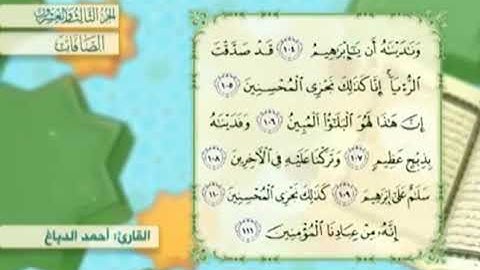 الجزء الثالث والعشرون
الصافات
وَنَٰدَيْنَٰهُ أَن يَٰٓإِبْرَٰهِيمُ ١٠٤ قَدْ صَدَّقْتَ
ٱلرُّءْيَآ إِنَّا كَذَٰلِكَ نَجْزِى ٱلْمُحْسِنِينَ ١٠٥
إِنَّ هَٰذَا لَهُوَ ٱلْبَلَٰٓؤُا۟ ٱلْمُبِينُ ١٠٦ وَفَدَيْنَٰهُ
بِذِبْحٍ عَظِيمٍ ١٠٧ وَتَرَكْنَا عَلَيْهِ فِى ٱلْءَاخِرِينَ ١٠٨
سَلَٰمٌ عَلَىٰٓ إِبْرَٰهِيمَ ١٠٩ كَذَٰلِكَ نَجْزِى ٱلْمُحْسِنِينَ ١١٠
إِنَّهُۥ مِنْ عِبَادِنَا ٱلْمُؤْمِنِينَ ١١١
القارئ: أحمد الدباغ